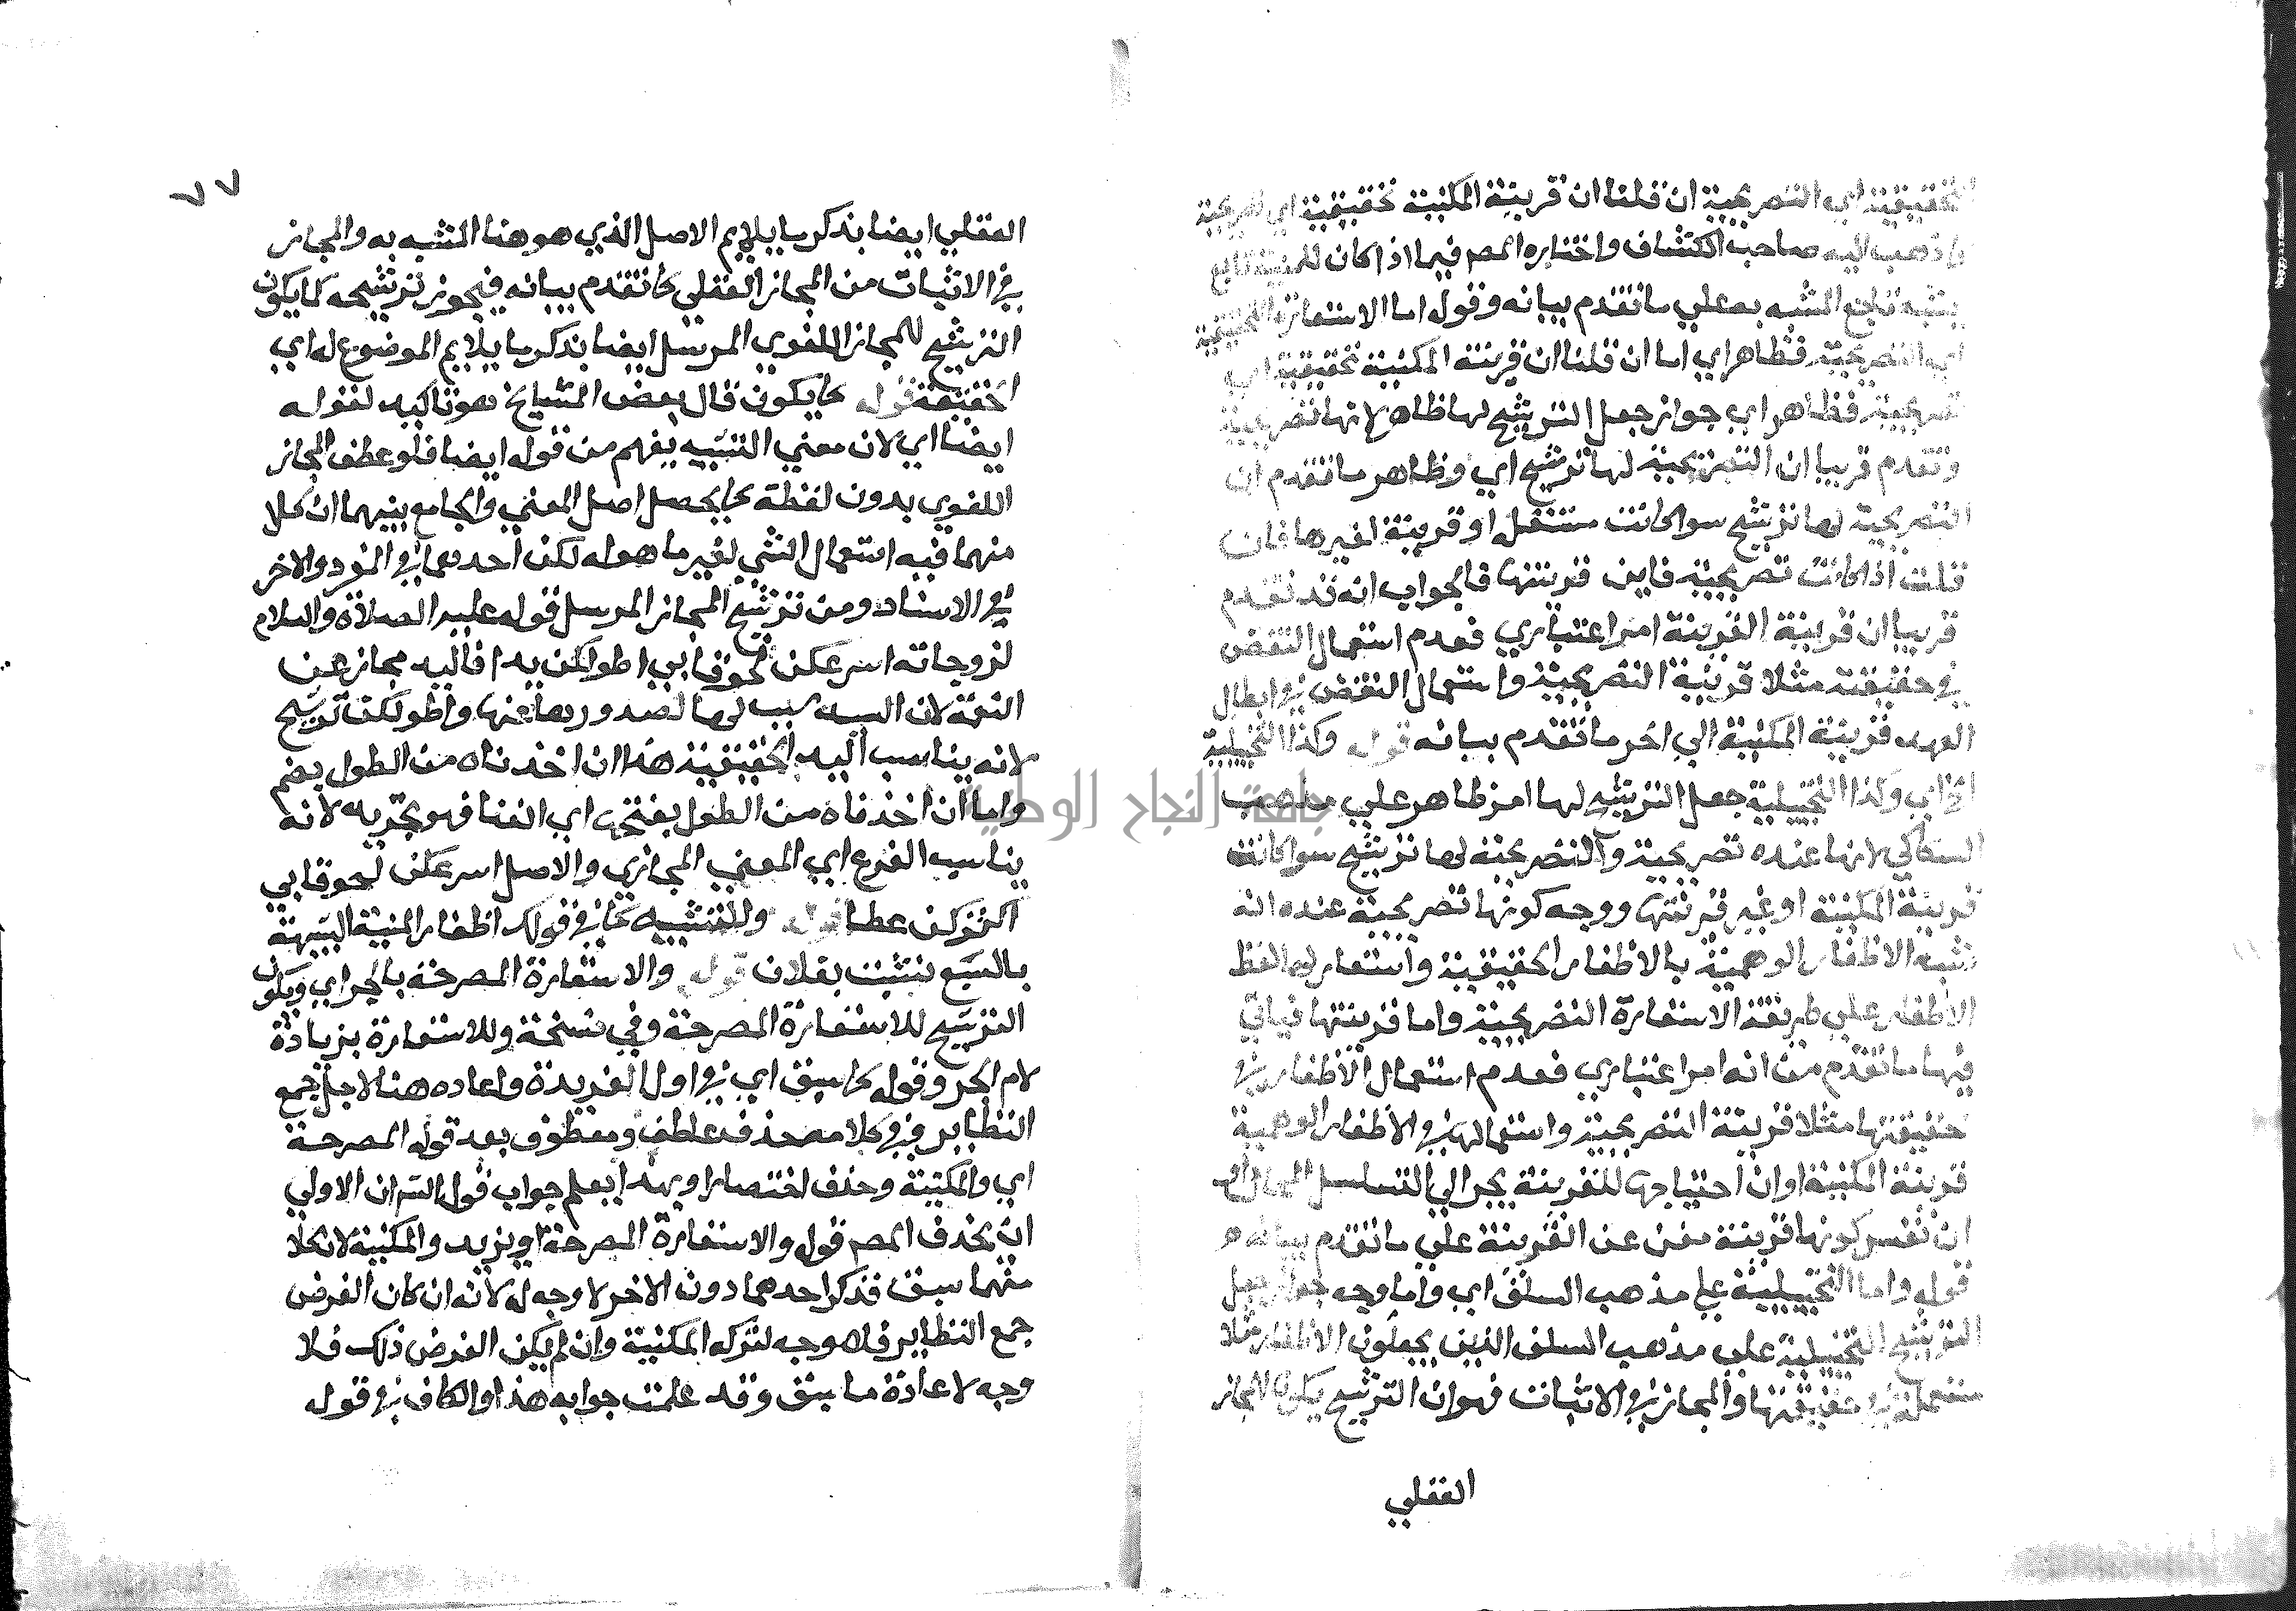 التحقيقية اي التصريحية ان قلنا ان قرينة المكنية تحقيقية اي تصريحية
ما ذهب اليه صاحب الكشاف واختاره المصم فيما اذا كان للمشبه تابع
يشبه تابع المشبه به علي ما تقدم بيانه وقوله اما الاستعارة التحقيقية
اي التصريحية فظاهر اي اما ان قلنا ان قرينة المكنية تحقيقية اي
تصريحية فظاهر اي جواز جعل الترشيح لها ظاهر لانها تصريحية
وتقدم قريبا ان التصريحية لها ترشيح اي وظاهر ما تقدم ان
التصريحية لها ترشيح سوا كانت مستقلة او قرينة لغيرها فان
قلت اذا كانت تصريحية فاين قرينتها فالجواب انه قد تقدم
قريبا ان قرينة القرينة امر اعتباري فعدم استعمال النقض
في حقيقته مثلا قرينة التصريحية واستعمال النقض في ابطال
العهد قرينة المكنية الي اخر ما تقدم بيانه قوله وكذا التخييلية
الخ اي وكذا التخييلية جعل الترشيح لها امر ظاهر علي مذهب
السكاكي لانها عنده تصريحية والتصريحية لها ترشيح سوا كانت
قرينة المكنية او غير قرينتها ووجه كونها تصريحية عنده انه
تشبه الاظفار الوهمية بالاظفار الحقيقية واستعار لها لفظ
الاظفار علي طريقة الاستعارة التصريحية واما قرينتها فياتي
فيها ما تقدم من انه امر اعتباري فعدم استعمال الاظفار في
حقيقتها مثلا قرينة التصريحية واستعمالها في الاظفار الوهمية
قرينة المكنية او ان احتياجها للقرينة يجر الي التسلسل المحال او
ان نفس كونها قرينة مغن عن القرينة علي ما تقدم بيانه
قوله واما التخييلية علي مذهب السلف اي واما وجه جواز جعل
الترشيح التخييلية علي مذهب السلف الذين يجعلون الاظفار مثلا
مستعملة في حقيقتها والمجاز في الاثبات فهو ان الترشيح يكون للمجاز
العقلي
٧٧
العقلي ايضا بذكر ما يلايم الاصل الذي هو هنا المشبه به والمجاز
في الاثبات من المجاز العقلي كما تقدم بيانه فيجوز ترشيحه كما يكون
الترشيح للمجاز اللغوي المرسل ايضا بذكر ما يلايم الموضوع له اي
الحقيقة قوله كما يكون قال بعض المشايخ هو تاكيد لقوله
ايضا اي لان معني التشبيه يفهم من قوله ايضا فلو عطف المجاز
اللغوي بدون لفظة كما يحصل اصل المعني والجامع بينهما ان كلا
منهما فيه استعمال الشي لغير ما هو له لكن احدهما في المفرد والاخر
في الاسناد ومن ترشيح المجاز المرسل قوله عليه الصلاة والسلام
لزوجاته اسرعكن لحوقا بي اطولكن يدا فاليد مجاز عن
النعمة لان اليد سبب لها لصدورها عنها واطولكن ترشيح
لانه يناسب اليد الحقيقية هذا ان اخذناه من الطول بضم
واما ان اخذناه من الطول بفتحها اي الغنا فهو تجريد لانه
يناسب الفرع اي المعني المجازي والاصل اسرعكن لحوقا بي
اكثركن عطا قوله وللتشبيه كما في قولك اظفار المنية الشبيهة
بالسبع نشبت بفلان قوله والاستعارة المصرحة بالجر اي ويكون
الترشيح للاستعارة المصرحة وفي نسخة وللاستعارة بزيادة
لام الجر وقوله كما سبق اي في اول الفريدة واعاده هنا لاجل جمع
النظاير ففي كلامه حذف عاطف ومعطوف بعد قوله المصرحة
اي والمكنية وحذف اختصارا وبهذا يعلم جواب قول الشم ان الاولي
ان يحذف المصم قوله والاستعارة المصرحة او يزيد والمكنية لان كلا
منهما سبق فذكر احدهما دون الاخر لا وجه له لانه ان كان الغرض
جمع النظاير فلا وجه لترك المكنية وان لم يكن الغرض ذلك فلا
وجه لاعادة ما سبق وقد علمت جوابه هذا والكاف في قوله
جامعة النجاح الوطنية